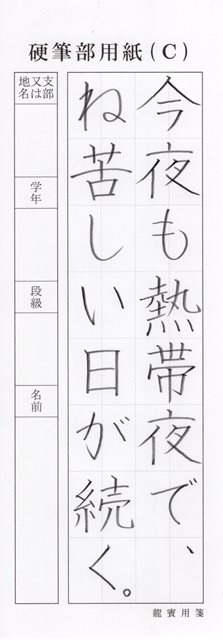 硬筆部用紙(C)
今夜も熱帯夜で、
ね苦しい日が続く。
支部
又は
地名
学年
段級
名前
龍賓用箋